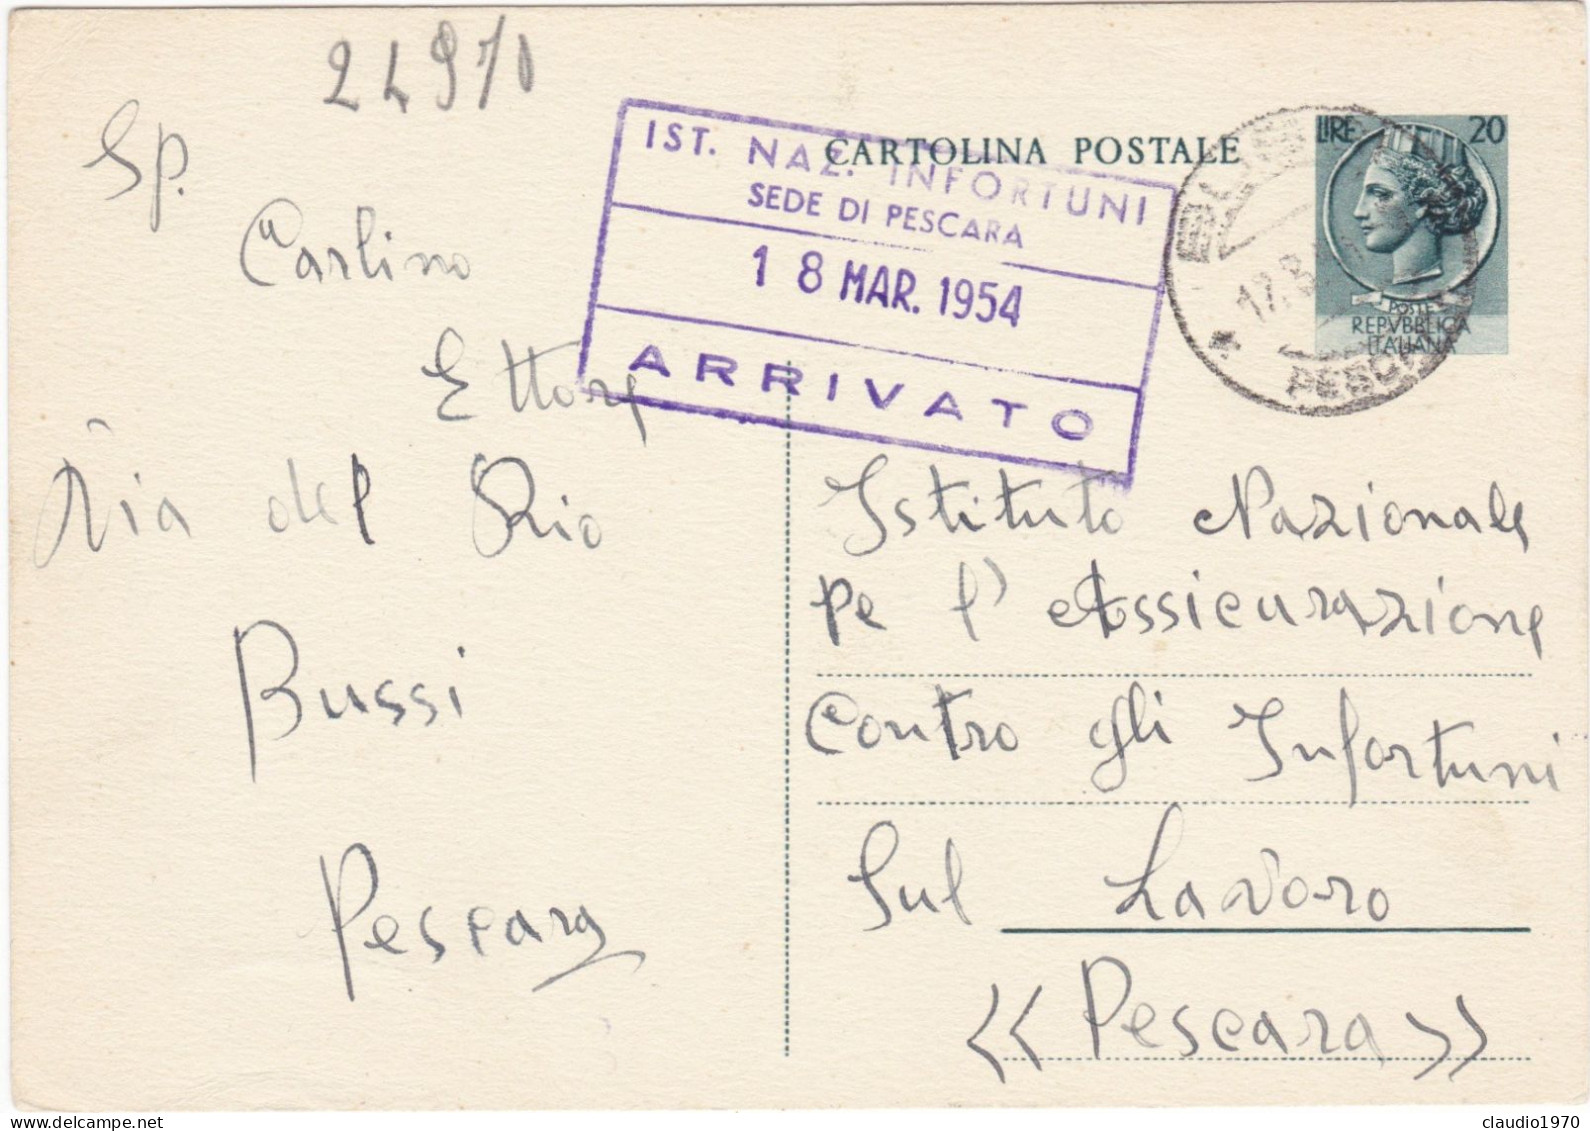 24970
IST. NAZ. INFORTUNI
SEDE DI PESCARA
18 MAR. 1954
ARRIVATO
CARTOLINA POSTALE
LIRE 20
POSTE
REPVBBLICA
ITALIANA
Sp.
Carlino
Ettore
Via del Rio
Bussi
Pescara
Istituto Nazionale
pe l' Assicurazione
Contro gli Infortuni
Sul Lavoro
<< Pescara >>
claudio1970